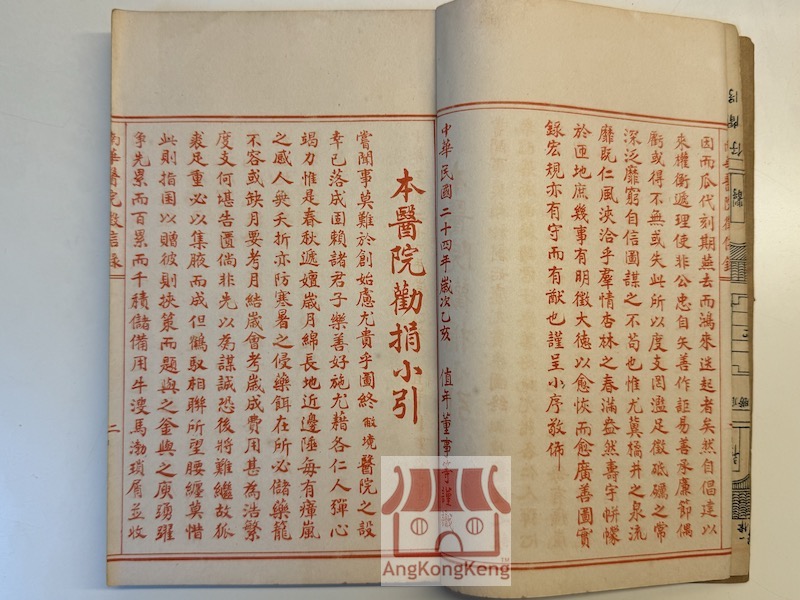 因而瓜代刻期燕去而鴻來迭起者矣然自倡建以
來權衡遞理使非公忠自矢善作詎易善承廉節偶
虧或得不無或失此所以度支罔濫足徵砥礪之常
深泛靡窮自信圖謀之不苟也惟尤冀橘井之泉流
靡既仁風浹洽乎羣情杏林之春滿盎然壽宇帡幪
於匝地庶幾事有明徵大德以愈恢而愈廣善圖實
錄宏規亦有守而有猷也謹呈小序敬佈
中華民國二十四年歲次乙亥 值年董事等謹識
本醫院勸捐小引
嘗聞事莫難於創始慮尤貴乎圖終敝境醫院之設
幸已落成固賴諸君子樂善好施尤藉各仁人殫心
竭力惟是春秋遞嬗歲月綿長地近邊陲每有瘴嵐
之感人無夭折亦防寒暑之侵藥餌在所必儲藥籠
不容或缺月要考月結歲會考歲成費用甚為浩繁
度支何堪告匱倘非先以為謀誠恐後將難繼故狐
裘足重必以集腋而成但鶴馭相聯所望腰纏莫惜
此則指囷以贈彼則挾策而題與之金與之庾湧躍
爭先累而百累而千積儲備用牛溲馬渤瑣屑並收
南華醫院徵信錄 二
AngKongKeng